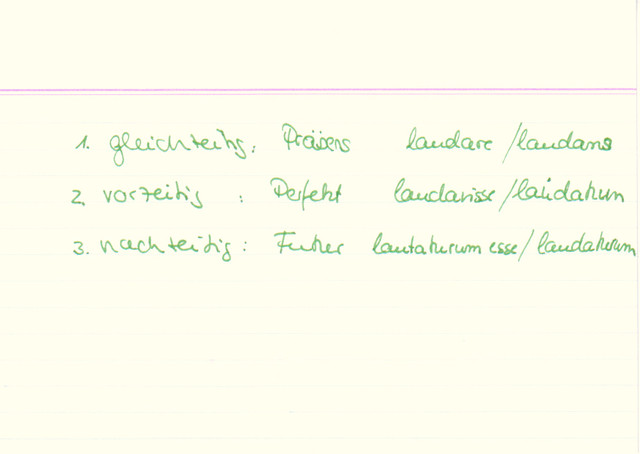 1. gleichzeitig: Präsens laudare/laudans
2. vorzeitig: Perfekt laudavisse/laudatum
3. nachzeitig: Futur lautaturum esse/laudaturum